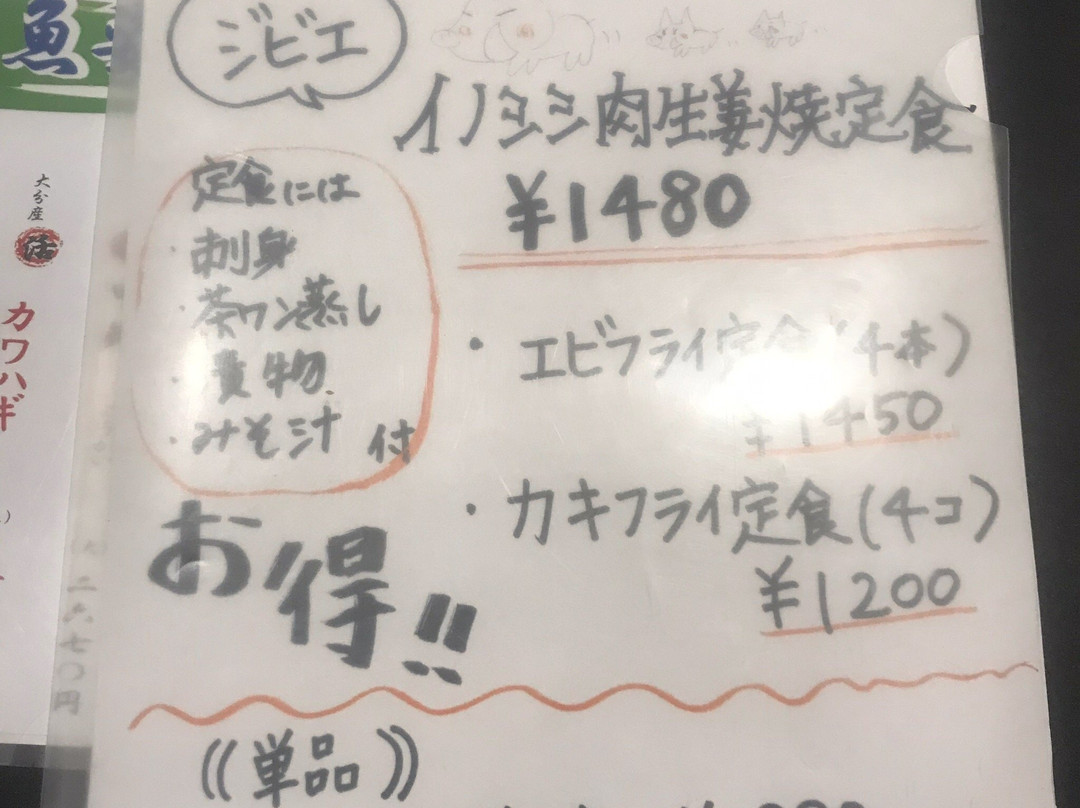 ジビエ
イノシシ肉生姜焼定食
¥1480
定食には
・刺身
・茶ワン蒸し
・煮物
・みそ汁 付
お得!!
・エビフライ定食(4本)
¥1450
・カキフライ定食(4コ)
¥1200
((単品))
魚
大分産
活
カワハギ
二六七〇円